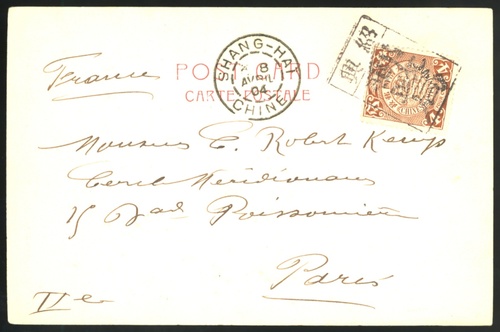 France
POST CARD
CARTE POSTALE
SHANG-HAI
8
AVRIL
04
CHINE
Monsieur C. Robert Kemp
Cercle Méridionaux
15 Bard Poissonnière
Paris